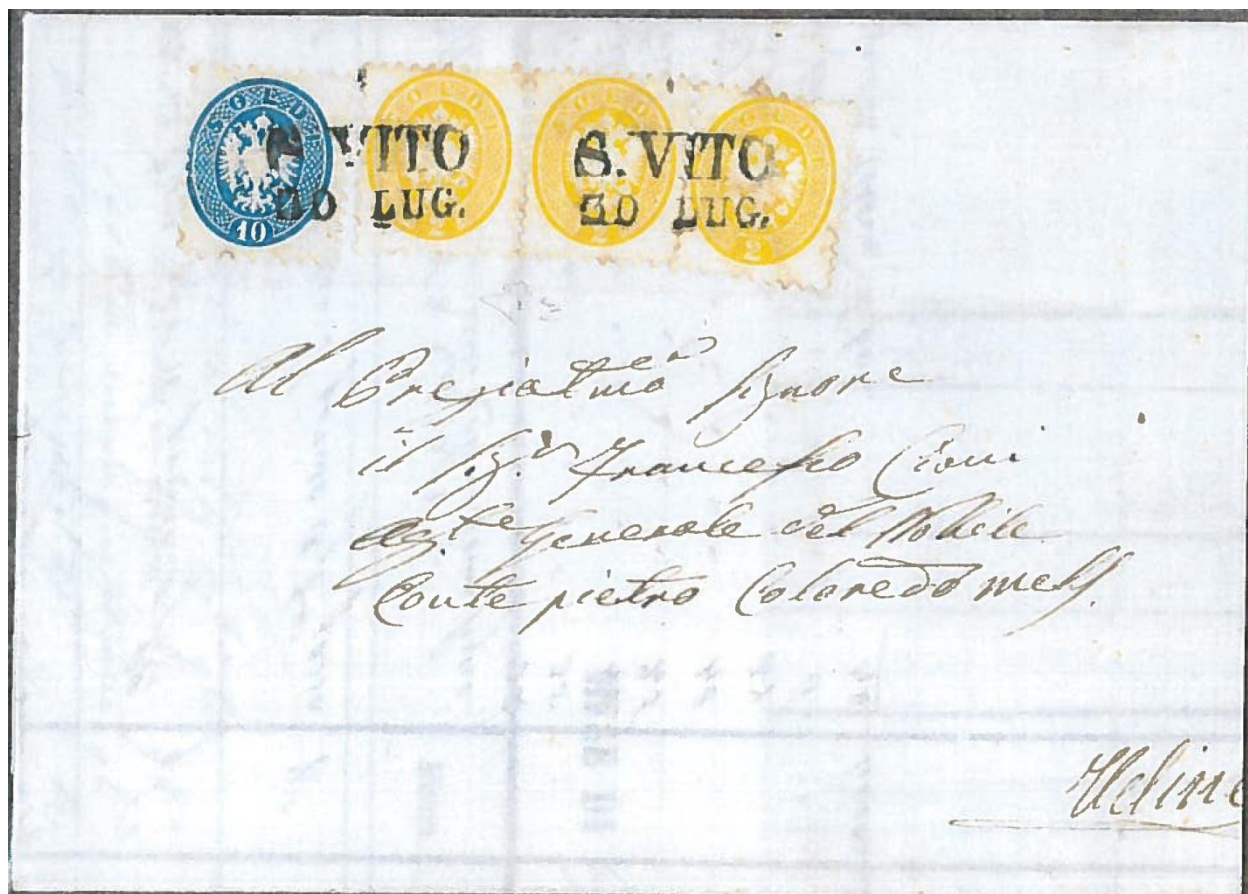 SOLDI SOLDI SOLDI SOLDI
S. VITO S. VITO
30 LUG. 30 LUG.
10 2 2 2
Al Pregiatmo Signore
il Sigr Francesco
Agte Generale del Nobile
Conte pietro Coloredo Mels.
Udine